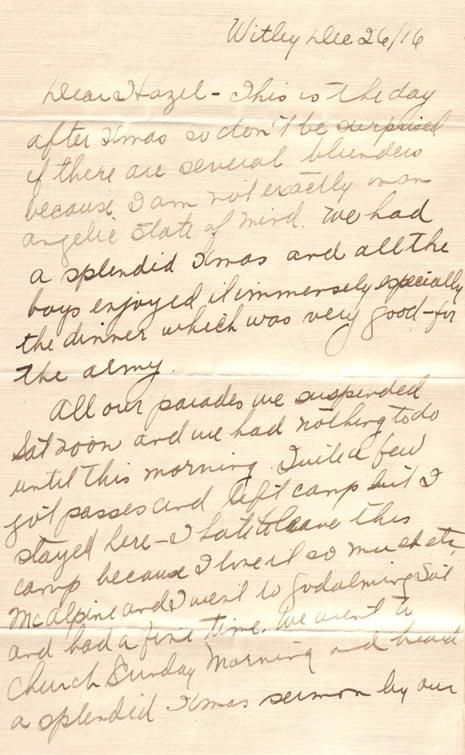 Witley Dec 26/16
Dear Hazel - This is the day
after Xmas so don't be surprised
if there are several blunders
because I am not exactly in an
angelic state of mind. We had
a splendid Xmas and all the
boys enjoyed it immensely especially
the dinner which was very good - for
the army.
All our parades we suspended
Sat noon and we had nothing to do
until this morning. Quite a few
got passes and left camp but I
stayed here - I hate to leave this
camp because I love it so much etc.
McAlpine and I went to Godalming Sat
and had a fine time. We went to
Church Sunday Morning and heard
a splendid Xmas sermon by our